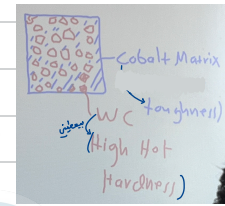 Cobalt Matrix
toughness)
WC
بيعطيني
(High Hot
Hardness)